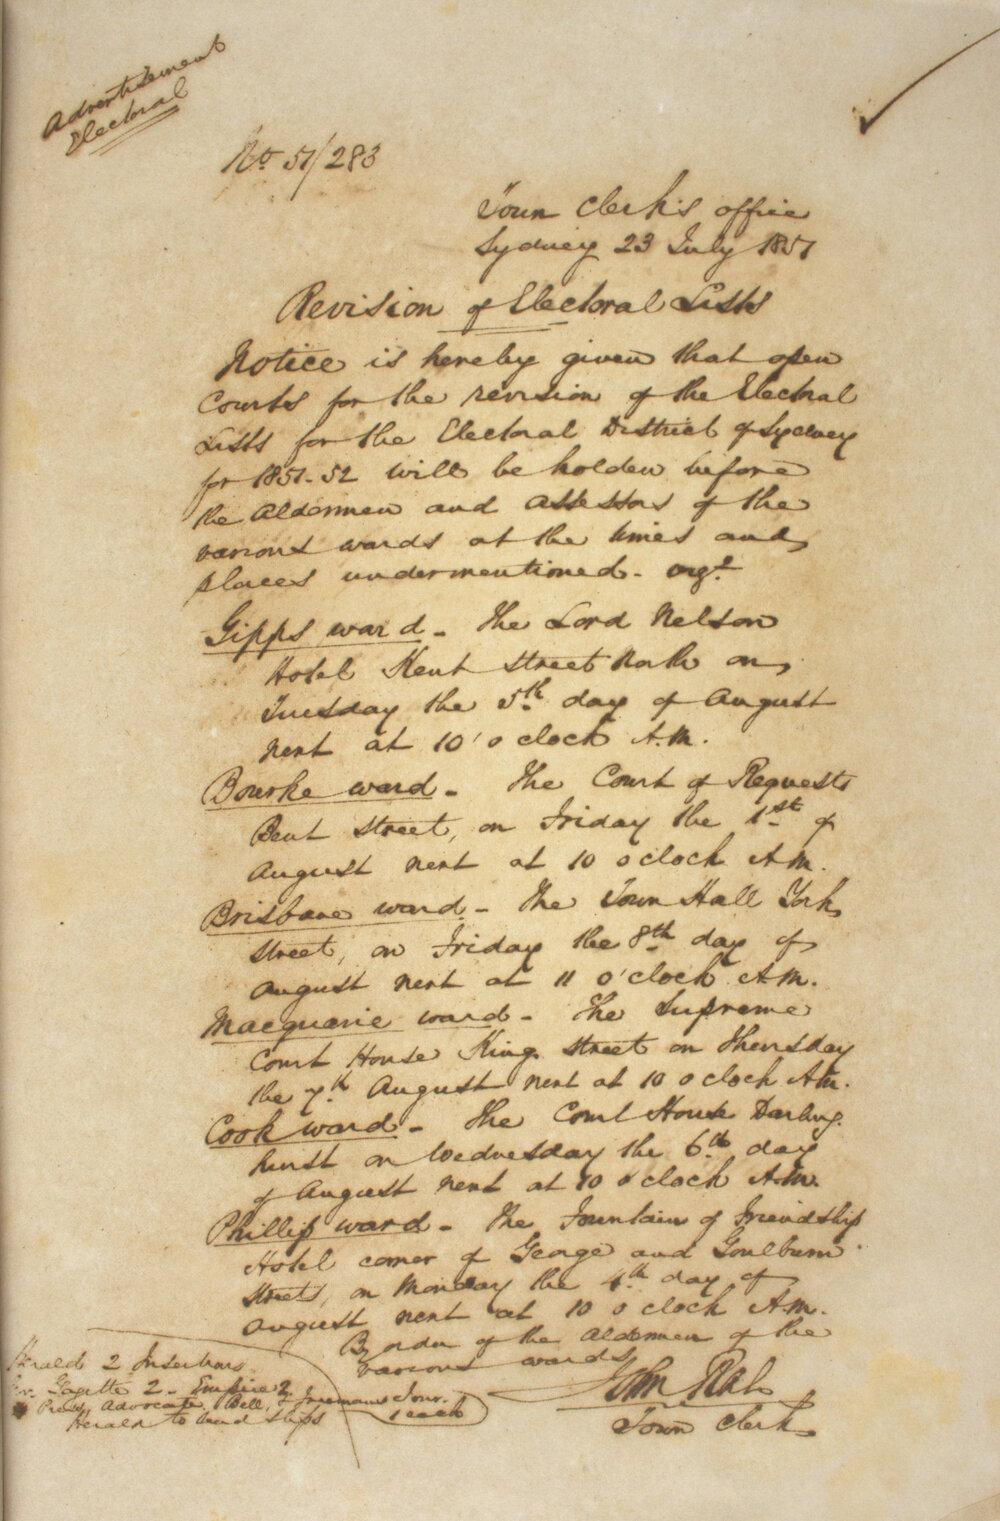 Advertisement
Electoral
No 51/283
Town Clerk's office
Sydney 23 July 1851
Revision of Electoral Lists
Notice is hereby given that open
Courts for the revision of the Electoral
Lists for the Electoral District of Sydney
for 1851-52 will be holden before
the Aldermen and Assessors of the
various wards at the times and
places undermentioned -
Gipps ward - The Lord Nelson
Hotel Kent Street North on
Tuesday the 5th day of August
next at 10 o'clock A.M.
Bourke ward - The Court of Requests
Bent Street, on Friday the 1st of
August next at 10 o clock A.M.
Brisbane ward - The Town Hall York
Street, on Friday the 8th day of
August next at 11 o'clock A.M.
Macquarie ward - The Supreme
Court House King Street on Thursday
the 7th August next at 10 o clock A.M.
Cook ward - The Court House Darling-
hurst on Wednesday the 6th day
of August next at 10 o clock A.M.
Phillip ward - The Fountain of Friendship
Hotel corner of George and Goulburn
Streets, on Monday the 4th day of
August next at 10 o clock A.M.
By order of the Aldermen of the
various wards
John Rae
Town Clerk
Herald 2 Insertions
Gazette 2 - Empire 2
Press, Advocate, Bell, Freemans Jour.
1 each
Herald to send slips